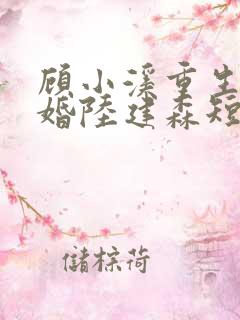 顾小溪重生
婚陸建森短
儲棕荷